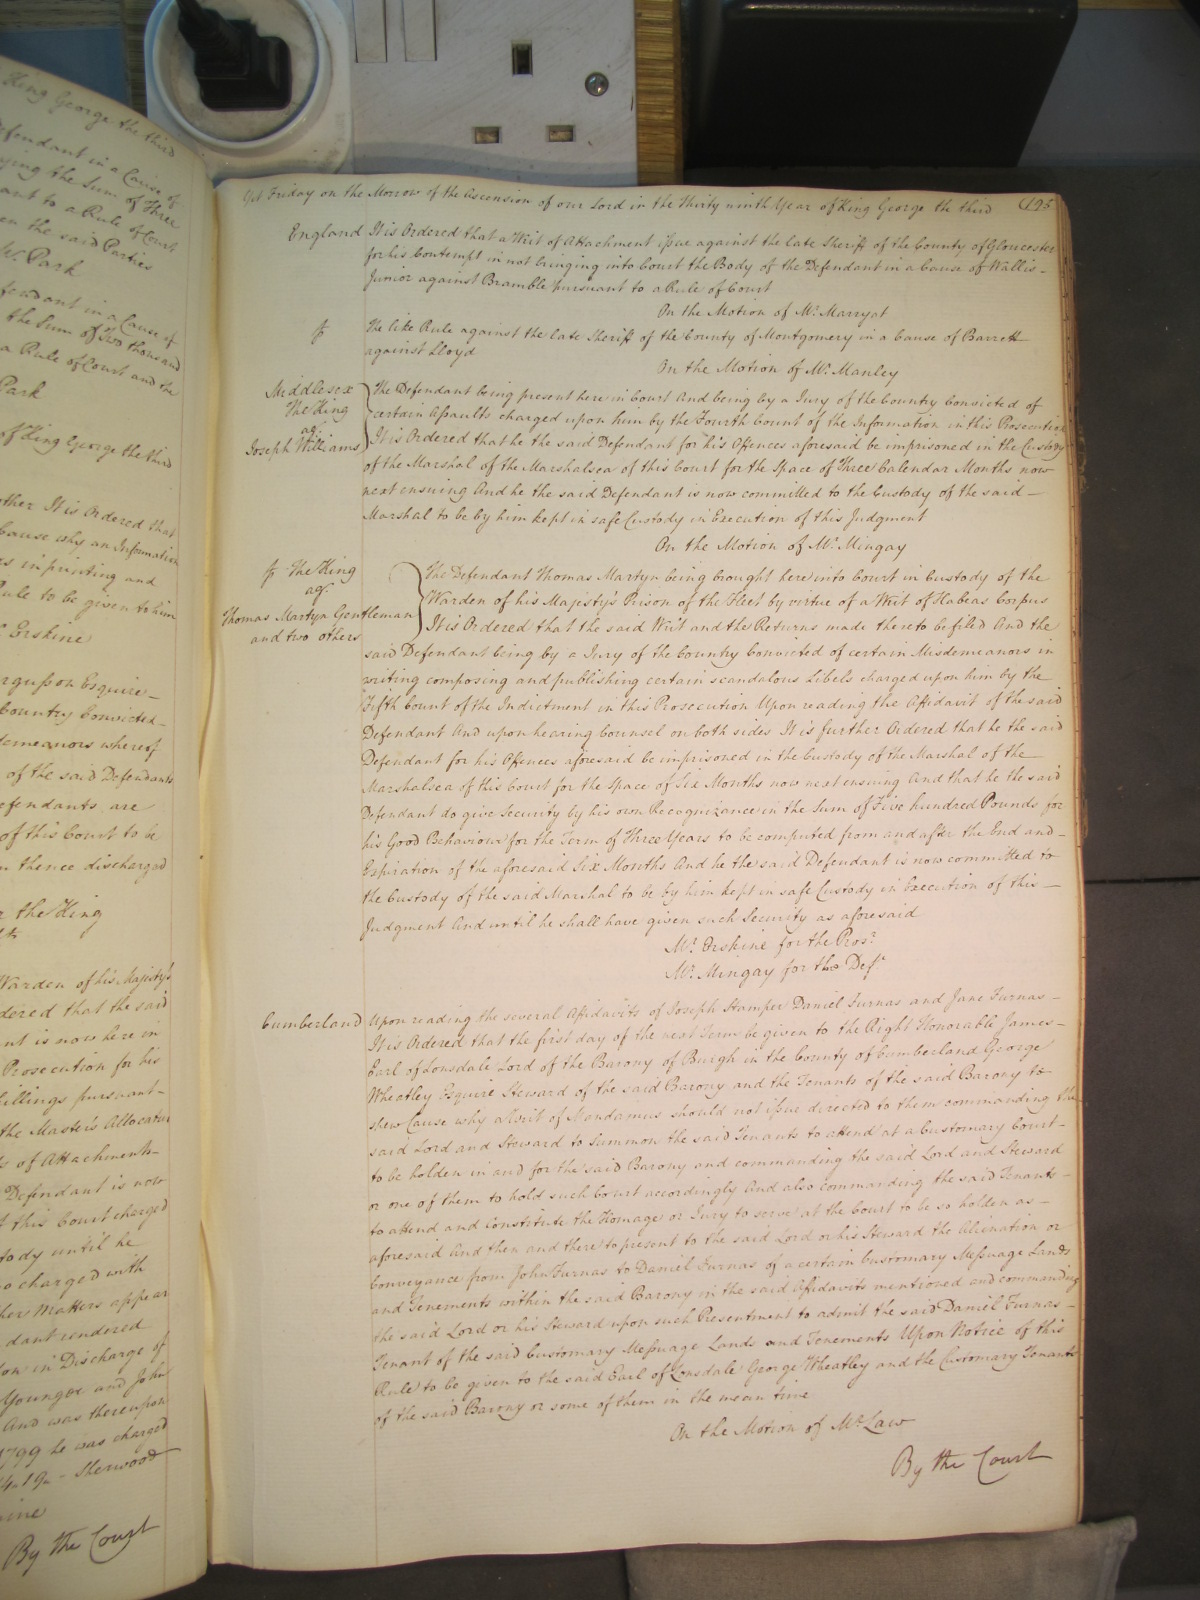 King George the third
Defendant in a Cause of
paying the Sum of Three
ant to a Rule of Court
en the said Parties
W. Park
fendant in a Cause of
the Sum of Two thousand
a Rule of Court and the
Park
of King George the third
other It is Ordered that
Cause why an Information
rs in printing and
Rule to be given to him
Erskine
rgusson Esquire
Country Convicted
demeanors whereof
of the said Defendants
efendants are
of this Court to be
m thence discharged
r the King
Warden of his Majesty's
dered that the said
ant is now here in
Prosecution for his
hillings pursuant
the Master's Allocatur
s of Attachment
Defendant is now
f this Court charged
tody until he
so charged with
her Matters appear
dant rendered
ion in Discharge of
Younger and John
And was thereupon
1799 he was charged
Sherwood
ine
By the Court
Yet Friday on the Morrow of the Ascension of our Lord in the Thirty ninth Year of King George the third (195
England It is Ordered that a Writ of Attachment issue against the late Sheriff of the County of Gloucester
for his Contempt in not bringing into Court the Body of the Defendant in a Cause of Wallis
Junior against Bramble pursuant to a Rule of Court
On the Motion of Mr. Marryat
The like Rule against the late Sheriff of the County of Montgomery in a Cause of Barrett
against Lloyd
On the Motion of Mr. Manley
Middlesex The Defendant being present here in Court And being by a Jury of the Country Convicted of
The King certain Assaults charged upon him by the Fourth Count of the Information in this Prosecution
agt.
Joseph Williams It is Ordered that he the said Defendant for his Offences aforesaid be imprisoned in the Custody
of the Marshal of the Marshalsea of this Court for the Space of Three Calendar Months now
next ensuing And he the said Defendant is now committed to the Custody of the said
Marshal to be by him kept in safe Custody in Execution of this Judgment
On the Motion of Mr. Mingay
The King The Defendant Thomas Martyn being brought here into Court in Custody of the
agt. Warden of his Majesty's Prison of the Fleet by virtue of a Writ of Habeas Corpus
Thomas Martyn Gentleman It is Ordered that the said Writ and the Returns made thereto be filed And the
and two others
said Defendant being by a Jury of the Country Convicted of certain Misdemeanors in
writing composing and publishing certain scandalous Libels charged upon him by the
Fifth Count of the Indictment in this Prosecution Upon reading the Affidavit of the said
Defendant And upon hearing Counsel on both sides It is further Ordered that he the said
Defendant for his Offences aforesaid be imprisoned in the Custody of the Marshal of the
Marshalsea of this Court for the Space of Six Months now next ensuing And that he the said
Defendant do give Security by his own Recognizance in the Sum of Five hundred Pounds for
his Good Behaviour for the Term of Three Years to be computed from and after the End and
Expiration of the aforesaid Six Months And he the said Defendant is now committed to
the Custody of the said Marshal to be by him kept in safe Custody in Execution of this
Judgment And until he shall have given such Security as aforesaid
Mr. Erskine for the Pros.r
Mr. Mingay for the Def.t
Cumberland Upon reading the several Affidavits of Joseph Stamper Daniel Furnas and Jane Furnas
It is Ordered that the first day of the next Term be given to the Right Honorable James
Earl of Lonsdale Lord of the Barony of Burgh in the County of Cumberland George
Wheatley Esquire Steward of the said Barony and the Tenants of the said Barony to
shew Cause why a Writ of Mandamus should not issue directed to them commanding the
said Lord and Steward to Summon the said Tenants to attend at a Customary Court
to be holden in and for the said Barony and commanding the said Lord and Steward
or one of them to hold such Court accordingly And also commanding the said Tenants
to attend and Constitute the Homage or Jury to serve at the Court to be so holden as
aforesaid And then and there to present to the said Lord or his Steward the Alienation or
Conveyance from John Furnas to Daniel Furnas of a certain Customary Messuage Lands
and Tenements within the said Barony in the said Affidavits mentioned and commanding
the said Lord or his Steward upon such Presentment to admit the said Daniel Furnas
Tenant of the said Customary Messuage Lands and Tenements Upon Notice of this
Rule to be given to the said Earl of Lonsdale George Wheatley and the Customary Tenants
of the said Barony or some of them in the mean time
On the Motion of Mr. Law
By the Court